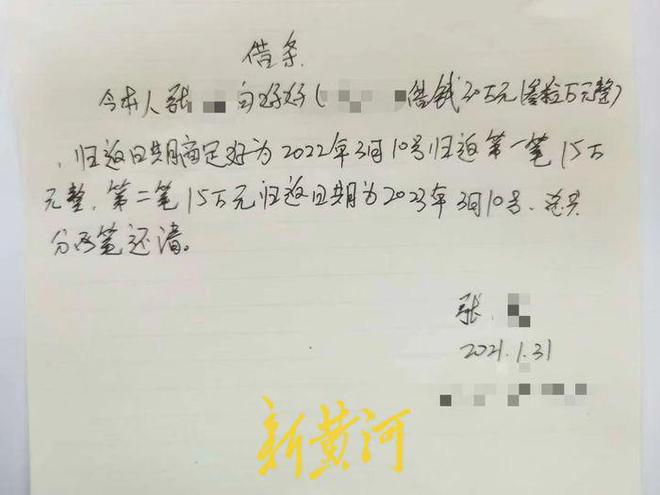 借条
今本人张 向好好( 借钱30万元(叁拾万元整)
、归返日期商定好为2022年3月10号归返第一笔15万
元整,第二笔15万元归返日期为2023年3月10号、总共
分两笔还清。
张
2021.1.31
新黄河